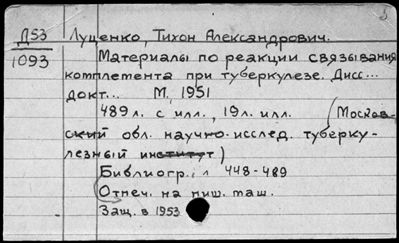 Д53 Луценко, Тихон Александрович.
1093 Материалы по реакции связывания
комплемента при туберкулезе. Дисс...
докт... М, 1951
489 л. с илл., 19 л. илл. (Москов-
ский обл. научно-исслед. туберку-
лезный институт)
Библиогр.: л 448-489
Отпеч. на пиш. маш.
Защ. в 1953